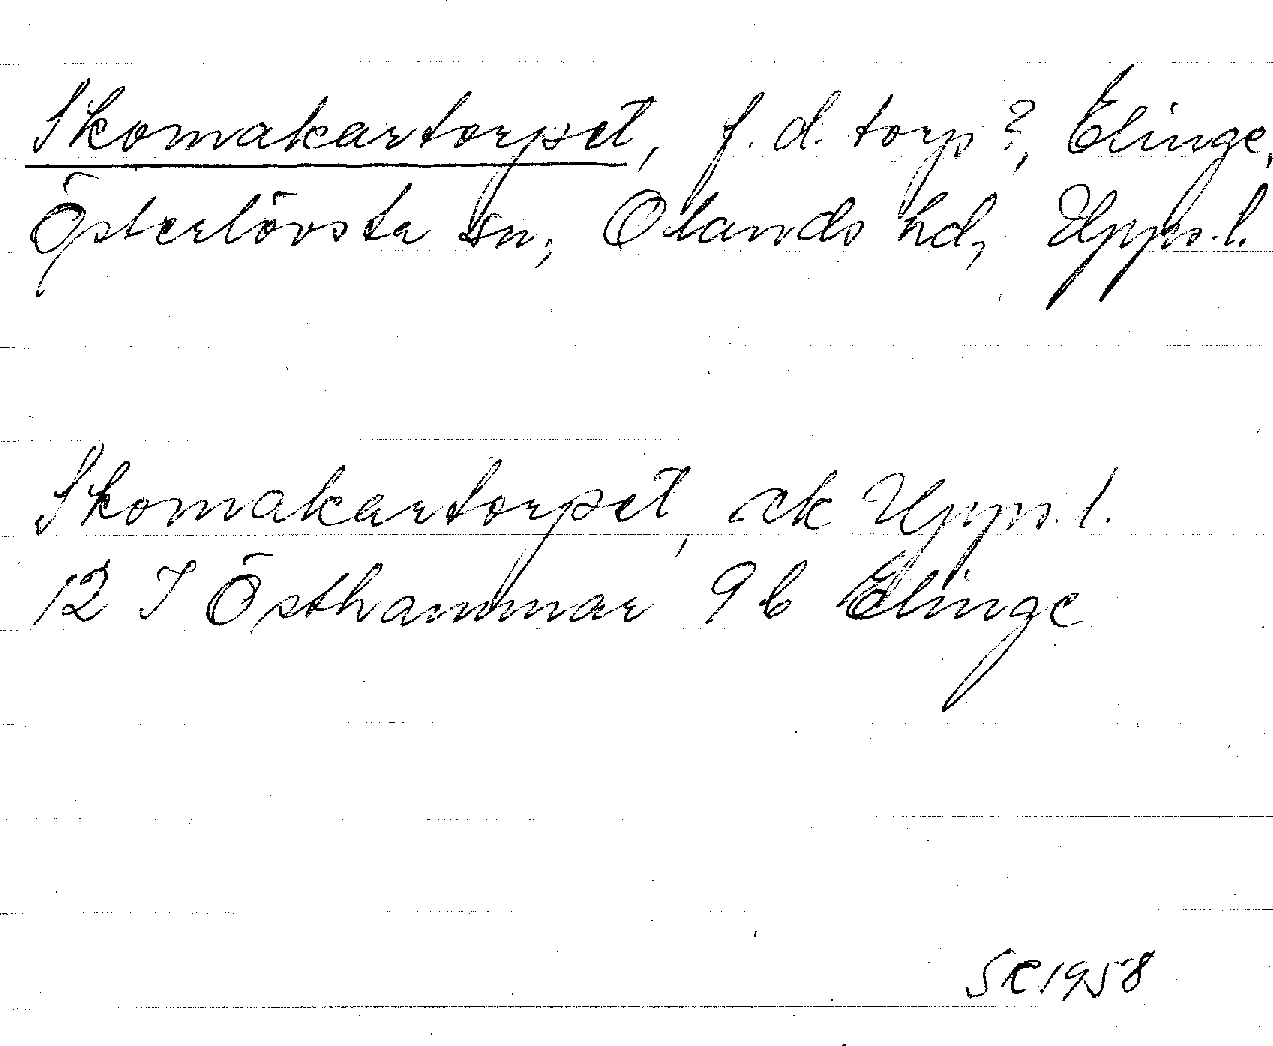 Skomakartorpet, f.d. torp?, Elinge,
Österlövsta sn, Olands hd, Upps.l.
Skomakartorpet, ek Upps.l.
12 I Östhammar 9 b Elinge
SR 1958